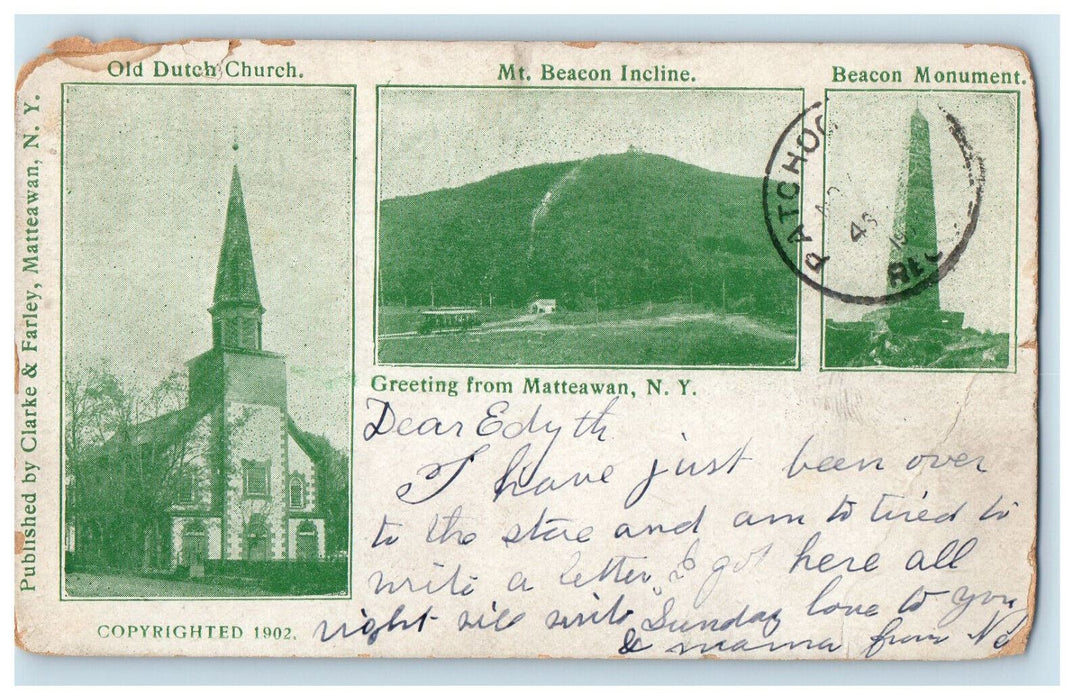 Old Dutch Church.
Mt. Beacon Incline.
Beacon Monument.
Published by Clarke & Farley, Matteawan, N. Y.
PATCHOG
REC
Greeting from Matteawan, N. Y.
Dear Edyth
I have just been over
to the stoe and am to tired to
write a letter I got here all
right will write Sunday love to you
& mama from
COPYRIGHTED 1902.